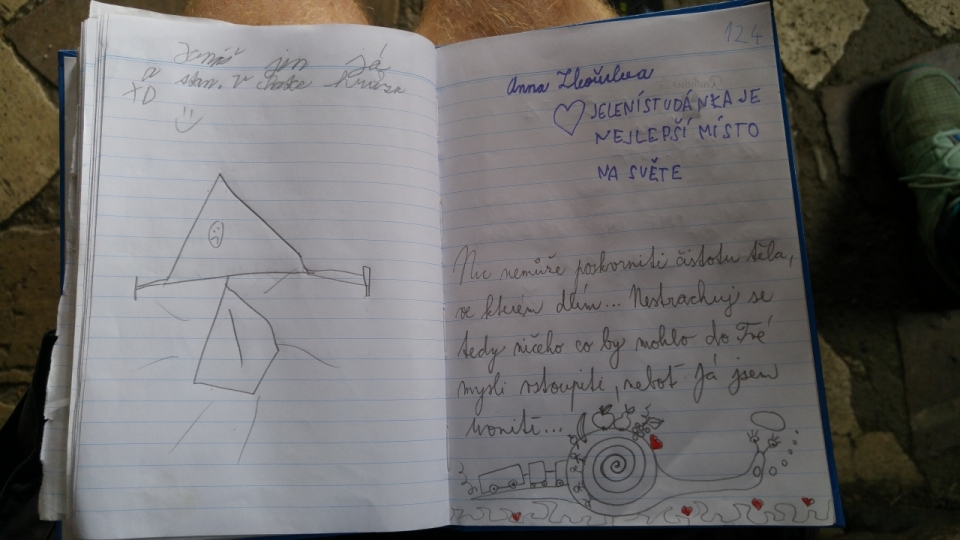 jen já
a stan. v
XD
124
Anna
JELENÍ STUDÁNKA JE
NEJLEPŠÍ MÍSTO
NA SVĚTE
Nic nemůže poskvrniti čistotu těla,
ve kterém dlím... Nestrachuj se
tedy ničeho co by mohlo do Tvé
mysli vstoupiti, neboť Já jsem
uvnitř...